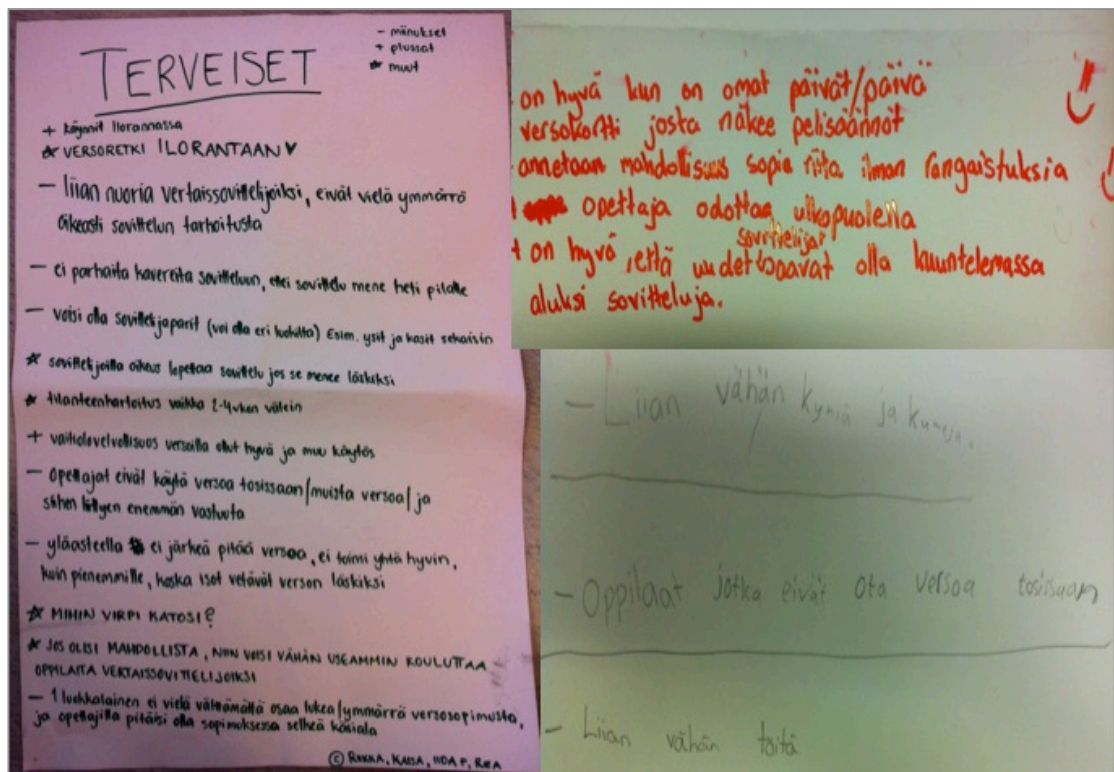 TERVEISET
- miinukset
+ plussat
☆ muut
+ käynnit Ilorannassa
☆ VERSORETKI ILORANTAAN ♥
- liian nuoria vertaissovittelijoiksi, eivät vielä ymmärrä
oikeasti sovittelun tarkoitusta
- ei parhaita kavereita sovitteluun, ettei sovittelu mene heti pilalle
- voisi olla sovittelijaparit (voi olla eri luokilta) Esim. ysit ja kasit sekaisin
☆ sovittelijoilla oikeus lopettaa sovittelu jos se menee läskiksi
☆ tilanteenkartoitus vaikka 2-4 vkon välein
+ vaitiolovelvollisuus versoilla ollut hyvä ja muu käytös
- opettajat eivät käytä versoa tosissaan/muista versoa/ ja
siihen liittyen enemmän vastuuta
- yläasteella ei järkeä pitää versoa, ei toimi yhtä hyvin,
kuin pienemmille, koska isot vetävät verson läskiksi
☆ MIHIN VIRPI KATOSI?
☆ JOS OLISI MAHDOLLISTA, NIIN VOISI VÄHÄN USEAMMIN KOULUTTAA
OPPILAITA VERTAISSOVITTELIJOIKSI
- 1 luokkalainen ei vielä välttämättä osaa lukea/ymmärrä versosopimusta,
ja opettajilla pitäisi olla sopimuksessa selkeä käsiala
© RIIKKA, KAISA, IIDA P, REA
on hyvä kun on omat päivät/päivä
versokortti josta näkee pelisäännöt
annetaan mahdollisuus sopia riita ilman rangaistuksia
opettaja odottaa ulkopuolella
sovittelijat
+ on hyvä, että uudet saavat olla kuuntelemassa
aluksi sovitteluja.
- Liian vähän kyniä ja kumeja.
- Oppilaat jotka eivät ota versoa tosissaan
- Liian vähän töitä